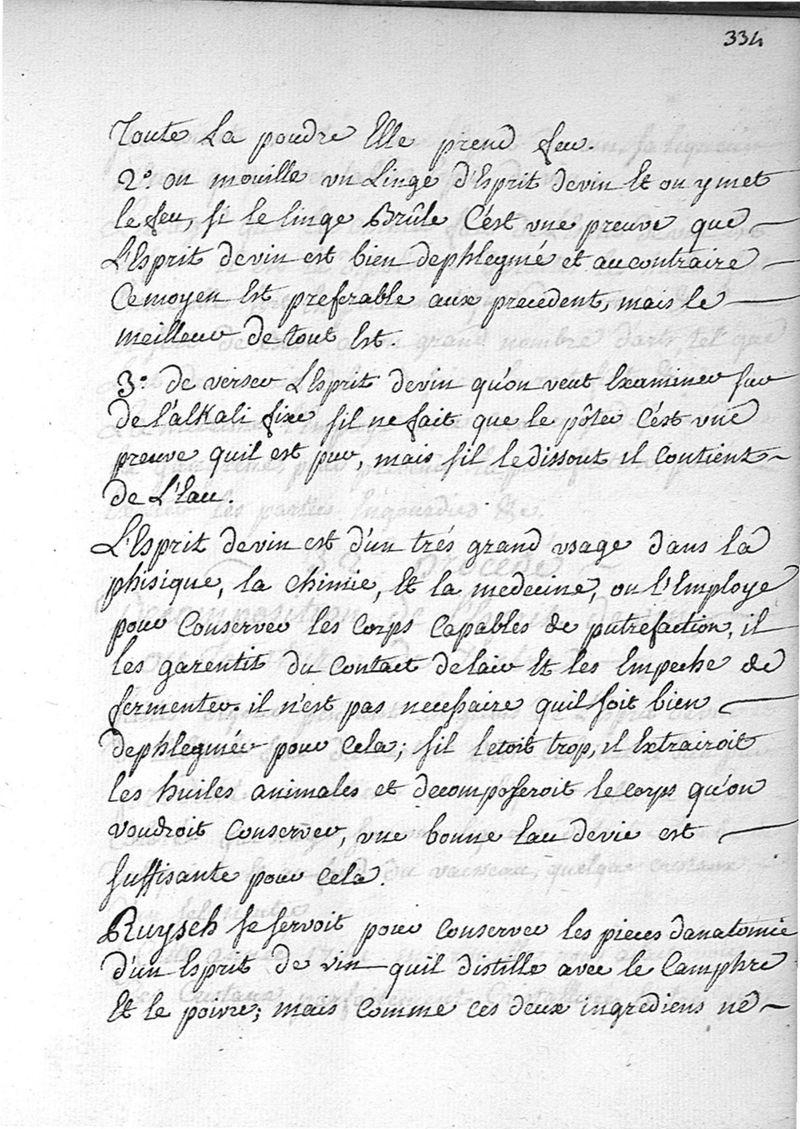 334
Toute La poudre Elle prend feu.
2°. on mouille un Linge d'Esprit de vin Et on y met
le feu, si le linge Brûle C'est une preuve que
L'Esprit de vin est bien dephlegmé et au contraire
Ce moyen Est preferable aux precedent, mais le
meilleur de tout Est.
3°. de verser L'Esprit de vin qu'on veut Examiner sur
de l'alkali fixe s'il ne fait que le pôter C'est une
preuve quil est pur, mais s'il le dissout il Contient
de L'Eau.
L'Esprit de vin est d'un trés grand usage dans la
phisique, la Chimie, Et la medecine, on l'Employe
pour Conserver les Corps Capables de putrefaction, il
les garentit du Contact de lair Et les Empeche de
fermenter. il n'est pas necessaire quil soit bien
dephlegmée pour Cela; s'il letoit trop, il Extrairoit
les huiles animales et decomposeroit le corps qu'on
voudroit Conserver, une bonne Eau de vie est
suffisante pour Cela.
Ruysch se servoit pour Conserver les pieces danatomie
d'un Esprit de vin quil distille avec le Camphre
Et le poivre; mais Comme ces deux ingrediens ne